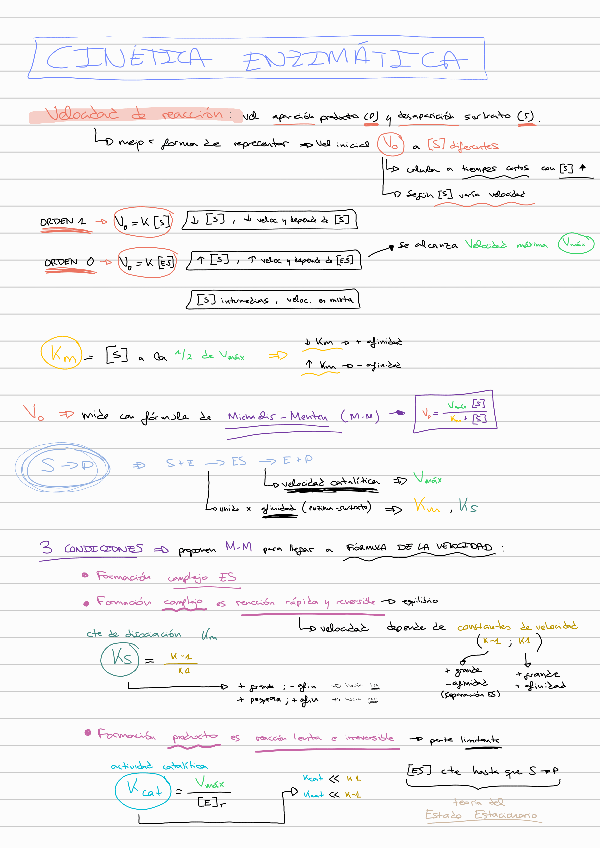 CINÉTICA ENZIMÁTICA
Velocidad de reacción: vel aparición producto (P) y desaparición sustrato (S).
↳ mejor forma de representar ⇒ vel inicial V₀ a [S] diferentes
↳ calcular a tiempos cortos con [S] ↑
↳ Según [S] varía velocidad
ORDEN 1 → V₀ = K [S] ↓ [S], ↓ veloc y depende de [S]
ORDEN 0 → V₀ = K [ES] ↑ [S], ↑ veloc y depende de [ES] se alcanza Velocidad máxima Vmáx
[S] intermedias, veloc. es mixta
Km = [S] a la 1/2 de Vmáx ⇒ ↓ Km → + afinidad
↑ Km → - afinidad
V₀ ⇒ mide con fórmula de Michaelis-Menten (M.M) → V₀ = Vmáx [S] / Km + [S]
S → P ⇒ S + E → ES → E + P
↳ velocidad catalítica ⇒ Vmáx
↳ unido x afinidad (enzima-sustrato) ⇒ Km, Ks
3 CONDICIONES ⇒ proponen M-M para llegar a FÓRMULA DE LA VELOCIDAD:
• Formación complejo ES
• Formación complejo es reacción rápida y reversible → equilibrio
↳ velocidad depende de constantes de velocidad
(K-1 ; K1)
cte de disociación Km
Ks = K-1 / K1
+ grande - afinidad (separación ES)
+ grande + afinidad
+ grande ; - afin
+ pequeña ; + afin
• Formación producto es reacción lenta e irreversible → parte limitante
actividad catalítica
Kcat = Vmáx / [E]T
Kcat << K1
Kcat << K-1
[ES] cte hasta que S → P
teoría del
Estado Estacionario